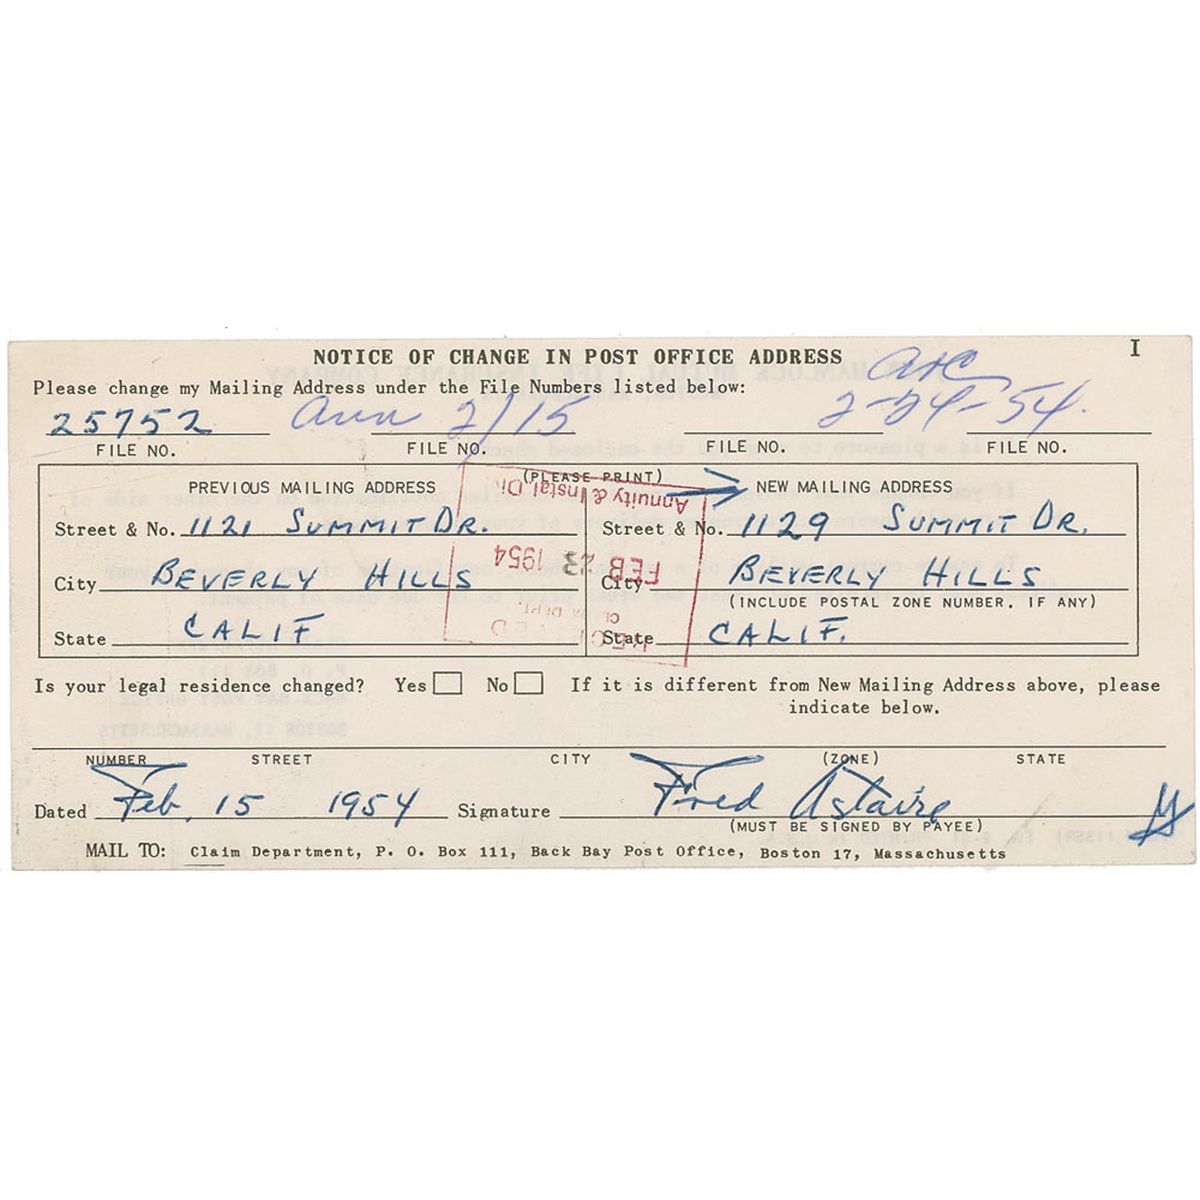 NOTICE OF CHANGE IN POST OFFICE ADDRESS
I
Please change my Mailing Address under the File Numbers listed below:
25752 2/15 2-24-54.
FILE NO. FILE NO. FILE NO. FILE NO.
(PLEASE PRINT)
PREVIOUS MAILING ADDRESS
Street & No. 1121 SUMMIT DR.
City BEVERLY HILLS
State CALIF
NEW MAILING ADDRESS
Street & No. 1129 SUMMIT DR.
City BEVERLY HILLS
(INCLUDE POSTAL ZONE NUMBER, IF ANY)
State CALIF.
Annuity & Instal. Div
FEB 23 1954
REC ED
Is your legal residence changed? Yes No If it is different from New Mailing Address above, please
indicate below.
NUMBER STREET CITY (ZONE) STATE
Dated Feb. 15 1954 Signature Fred Astaire
(MUST BE SIGNED BY PAYEE)
MAIL TO: Claim Department, P. O. Box 111, Back Bay Post Office, Boston 17, Massachusetts